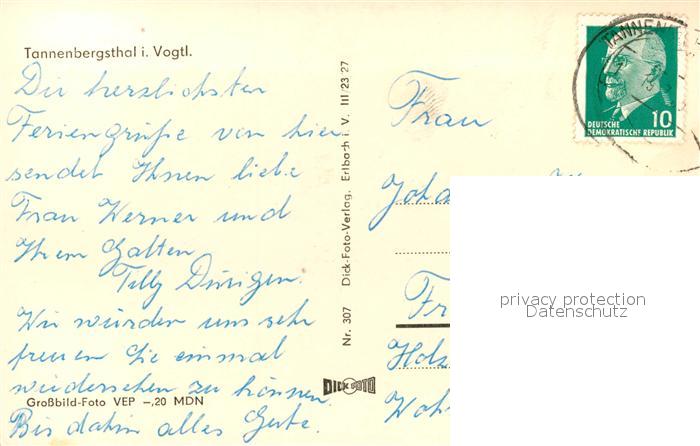 Tannenbergsthal i. Vogtl.
Die herzlichsten
Feriengrüße von hier
sendet Ihnen liebe
Frau Werner und
Ihrem Gatten
Tilly Dürigen.
Wir würden uns sehr
freuen Sie einmal
wiedersehen zu können.
Großbild-Foto VEP -,20 MDN
Bis dahin alles Gute.
Nr. 307 Dick-Foto-Verlag, Erlbach i. V. III 23 27
DICK FOTO
Frau
Joha
Fr
Holz
Woh
TANNEN
10
DEUTSCHE
DEMOKRATISCHE REPUBLIK
privacy protection
Datenschutz